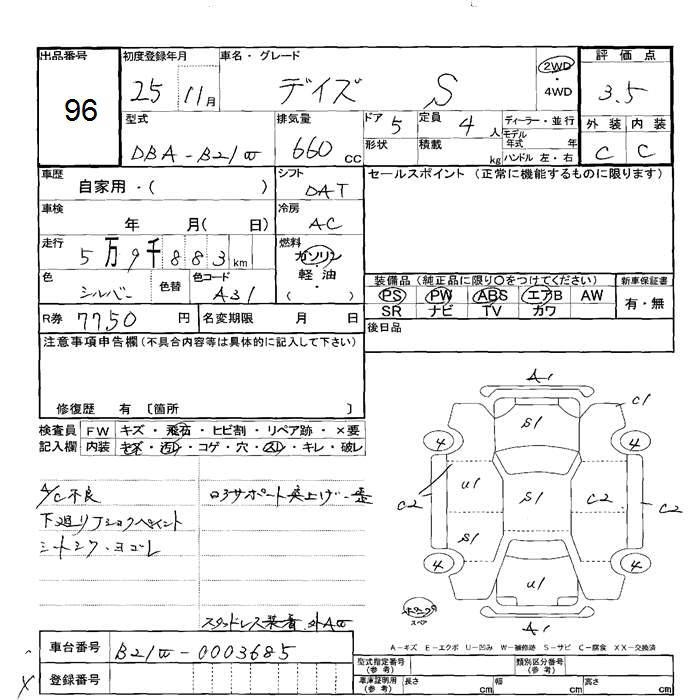 出品番号 96
初度登録年月 25 11月
車名・グレード デイズ S
2WD ・ 4WD
評価点 3.5
外装 内装
C C
型式 DBA-B21W
排気量 660 CC
ドア 5 定員 4 人
形状 積載 kg
ディーラー・並行
モデル年式 年
ハンドル 左・右
車歴 自家用・( )
シフト DAT
セールスポイント (正常に機能するものに限ります)
車検 年 月( 日)
冷房 AC
走行 5万9千883km
燃料 ガソリン・軽油 ( )
色 シルバー 色替
色コード A31
装備品 (純正品に限り○をつけてください)
PS PW ABS エアB AW
SR ナビ TV カワ
新車保証書 有・無
R券 7750 円
名変期限 月 日
後日品
注意事項申告欄 (不具合内容等は具体的に記入して下さい)
修復歴 有 〔箇所 〕
検査員記入欄
FW キズ・飛石・ヒビ割・リペア跡・×要
内装 キズ・汚レ・コゲ・穴・スレ・キレ・破レ
A/C不良
下廻り
シートシワ・ヨゴレ
スタッドレス装着
A1
S1
C1
4
4
U1
S1
C2
C2
C2
S1
4
4
U1
A1
スペア
A-キズ E-エクボ U-凹み W-補修跡 S-サビ C-腐食 XX-交換済
車台番号 B21W-0003685
登録番号
型式指定番号 (参考)
類別区分番号 (参考)
車庫証明用 (参考) 長さ cm 幅 cm 高さ cm